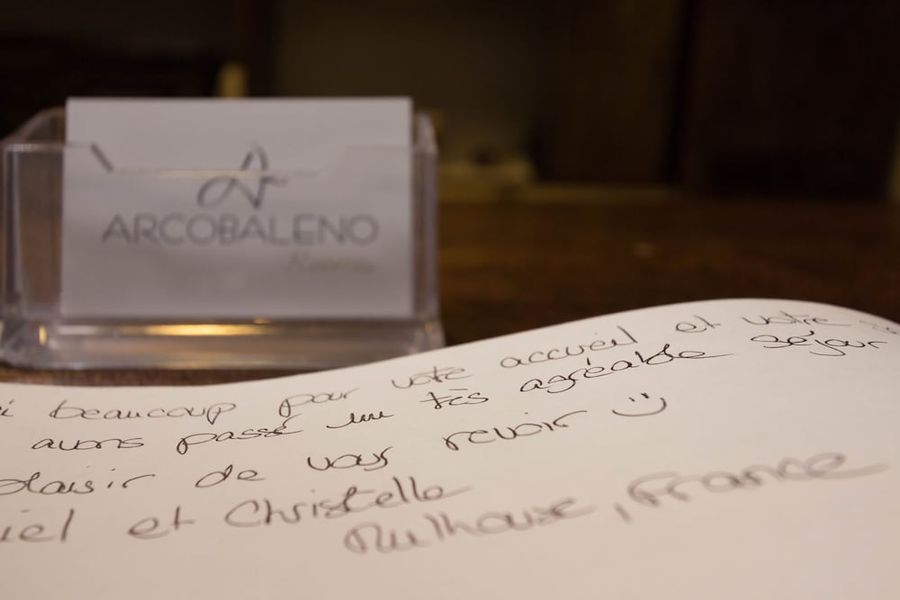 ARCOBALENO
beaucoup pour votre accueil et votre
avons passé un très agréable séjour
plaisir de vous revoir :)
iel et Christelle
Mulhouse, France